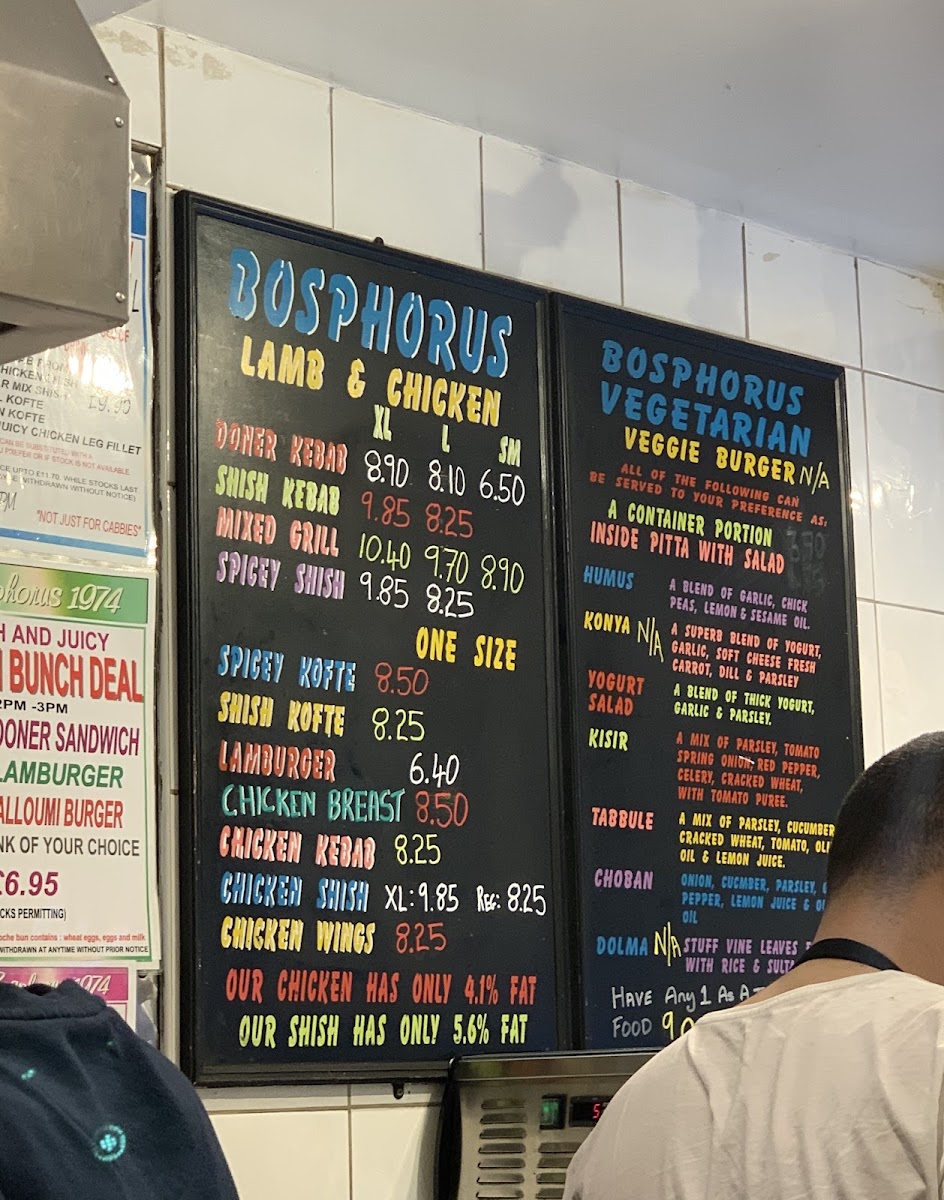 CHICKEN
R MIX SHISH
£9.90
KOFTE
N KOFTE
UICY CHICKEN LEG FILLET
CAN BE SUBSTITUTED WITH A
IF STOCK IS NOT AVAILABLE
UPTO £11.70. WHILE STOCKS LAST
WITHDRAWN WITHOUT NOTICE)
PM
"NOT JUST FOR CABBIES"
phorus 1974
H AND JUICY
BUNCH DEAL
2PM -3PM
DONER SANDWICH
LAMBURGER
ALLOUMI BURGER
NK OF YOUR CHOICE
£6.95
CKS PERMITTING)
oche bun contains : wheat eggs, eggs and milk
WITHDRAWN AT ANYTIME WITHOUT PRIOR NOTICE
1974
BOSPHORUS
LAMB & CHICKEN
XL L SM
DONER KEBAB 8.90 8.10 6.50
SHISH KEBAB 9.85 8.25
MIXED GRILL 10.40 9.70 8.90
SPICEY SHISH 9.85 8.25
ONE SIZE
SPICEY KOFTE 8.50
SHISH KOFTE 8.25
LAMBURGER 6.40
CHICKEN BREAST 8.50
CHICKEN KEBAB 8.25
CHICKEN SHISH XL:9.85 REG: 8.25
CHICKEN WINGS 8.25
OUR CHICKEN HAS ONLY 4.1% FAT
OUR SHISH HAS ONLY 5.6% FAT
BOSPHORUS
VEGETARIAN
VEGGIE BURGER N/A
ALL OF THE FOLLOWING CAN
BE SERVED TO YOUR PREFERENCE AS:
A CONTAINER PORTION
INSIDE PITTA WITH SALAD
HUMUS A BLEND OF GARLIC, CHICK
PEAS, LEMON & SESAME OIL.
KONYA N/A A SUPERB BLEND OF YOGURT,
GARLIC, SOFT CHEESE FRESH
CARROT, DILL & PARSLEY
YOGURT A BLEND OF THICK YOGURT,
SALAD GARLIC & PARSLEY.
KISIR A MIX OF PARSLEY, TOMATO
SPRING ONION, RED PEPPER,
CELERY, CRACKED WHEAT,
WITH TOMATO PUREE.
TABBULE A MIX OF PARSLEY, CUCUMBER
CRACKED WHEAT, TOMATO, OLI
OIL & LEMON JUICE.
CHOBAN ONION, CUCMBER, PARSLEY,
PEPPER, LEMON JUICE & OL
OIL
DOLMA N/A STUFF VINE LEAVES
WITH RICE & SULTA
HAVE Any 1 As A
FOOD